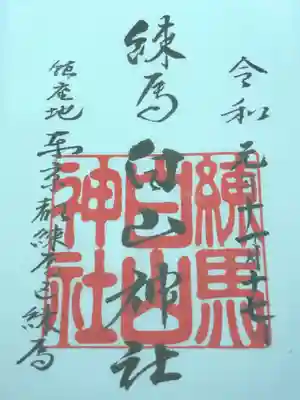 令和元年十一月十七日
練馬白山神社
鎮座地東京都練馬区練馬
練馬
白山
神社